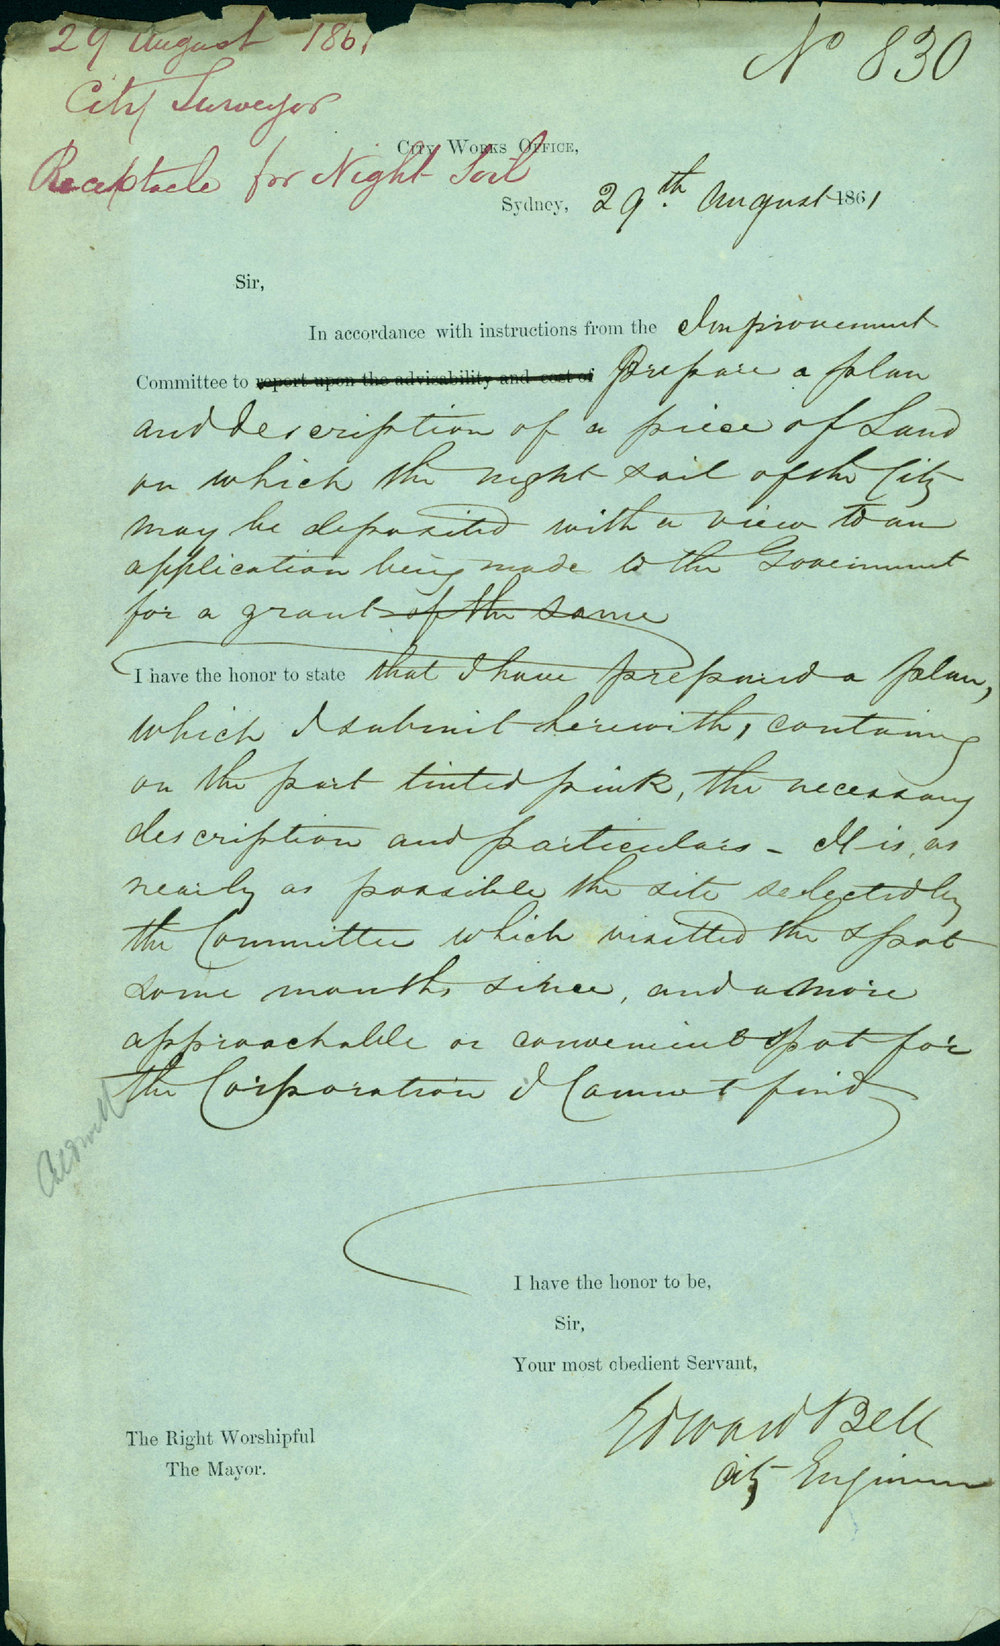 29 August 1861
No 830
City Surveyor
Receptacle for Night Soil
City Works Office,
Sydney, 29th August 1861
Sir,
In accordance with instructions from the Improvement
Committee to report upon the advisability and cost of Prepare a plan
and description of a piece of Land
on which the night soil of the City
may be deposited with a view to an
application being made to the Government
for a grant of the same
I have the honor to state that I have prepared a plan,
which I submit herewith, containing
on the part tinted pink, the necessary
description and particulars - It is, as
nearly as possible the site selected by
the Committee which visitted the spot
some months since, and a more
approachable or convenient spot for
the Corporation I Cannot find
Caldwell
I have the honor to be,
Sir,
Your most obedient Servant,
Edward Bell
City Engineer
The Right Worshipful
The Mayor.